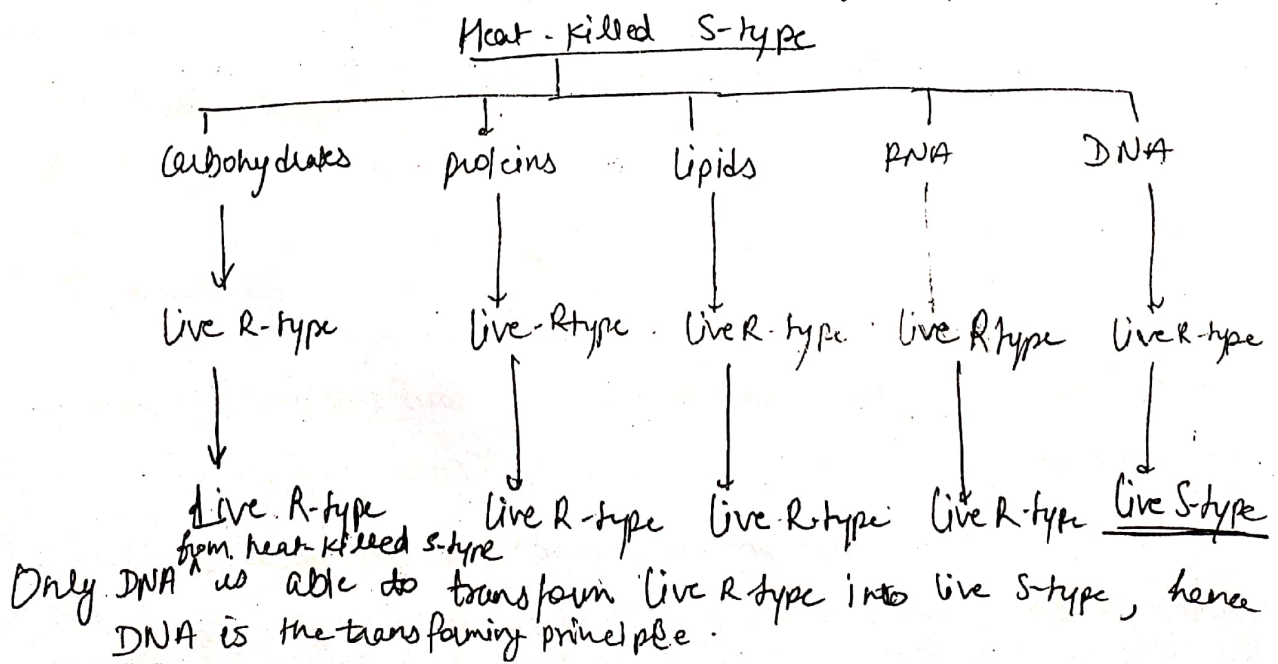 Heat-killed S-type
Carbohydrates proteins lipids RNA DNA
live R-type live-Rtype live R-type live Rtype live R-type
Live R-type live R-type live R-type live R-type live S-type
from heat killed S-type
Only DNA ^ is able to transform live R type into live S-type, hence
DNA is the transforming principle.